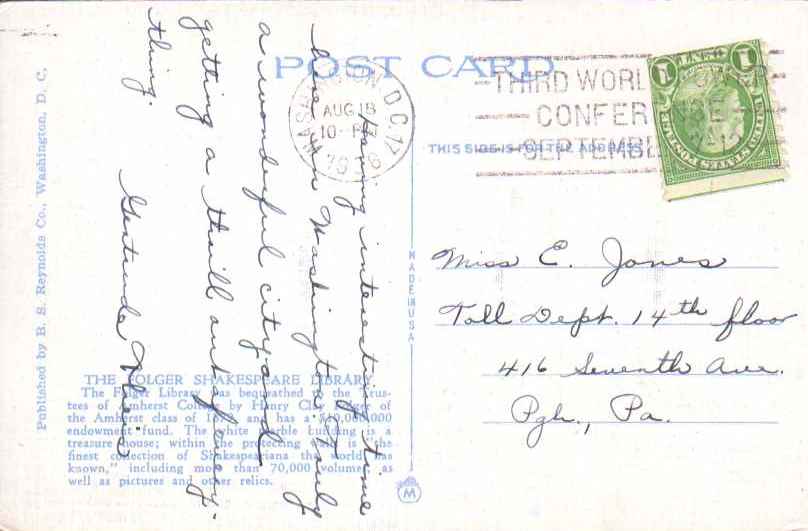 POST CARD
THIS SIDE IS FOR THE ADDRESS
WASHINGTON, D.C. 17
AUG 18
10 - PM
1936
THIRD WORLD POWER
CONFERENCE
SEPTEMBER
1 CENT 1
UNITED STATES POSTAGE
Having interesting time
here in Washington. Truly
a wonderful city and
getting a thrill out of every-
thing.
Gertrude
Miss E. Jones
Toll Dept. 14th floor
416 Seventh Ave.
Pgh., Pa.
MADE IN USA
Published by B. S. Reynolds Co., Washington, D. C.
THE FOLGER SHAKESPEARE LIBRARY
The Folger Library was bequeathed to the Trus-
tees of Amherst College by Henry Clay Folger of
the Amherst class of and has a $10,000,000
endowment fund. The white marble building is a
treasure house; within the protecting walls is "the
finest collection of Shakespeariana the world has
known," including more than 70,000 volumes as
well as pictures and other relics.
M